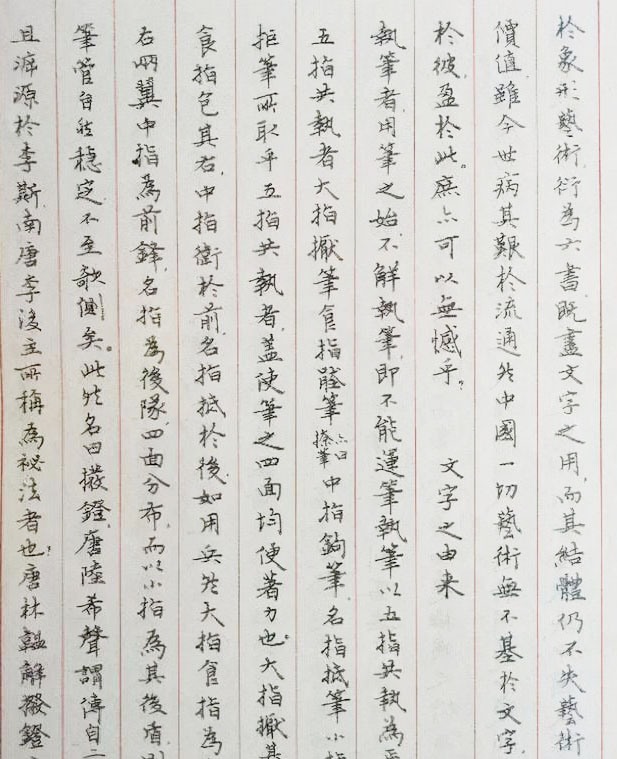 於象形藝術衍為六書既盡文字之用而其結體仍不失藝術
價值雖今世病其艱於流通然中國一切藝術無不基於文字
於彼盈於此。庶亦可以無憾乎? 文字之由来
執筆者用筆之始不解執筆即不能運筆執筆以五指共執為
五指共執者大指擫筆食指壓筆亦曰捺筆中指鉤筆名指抵筆小
拒筆所取乎五指共執者蓋使筆之四面均便著力也。大指擫其
食指包其右中指衛於前名指抵於後如用兵然大指食指為
右兩翼中指為前鋒名指為後隊四面分布而以小指為其後盾
筆管自然穩定不至欹側矣。此然名曰撥鐙唐陸希聲謂傳自二
且源於李斯南唐李後主所稱為祕法者也?唐林韞解撥鐙